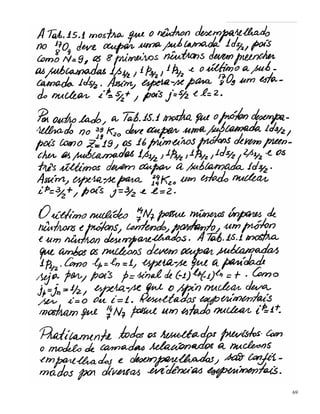 A Tab. 15.1 mostra que o nêutron desemparelhado
no ¹⁷₈O₉ deve ocupar uma subcamada 1d₅/₂, pois
como N=9, os 8 primeiros nêutrons devem preencher
as subcamadas 1s₁/₂, 1p₃/₂, 1p₁/₂ e o último a sub-
camada 1d₅/₂. Assim, espera-se para ¹⁷₈O₉ um esta-
do nuclear iᵖ=5/2⁺, pois j=5/2 e l=2.
Por outro lado, a Tab. 15.1 mostra que o próton desempa-
relhado no ³⁹₁₉K₂₀ deve ocupar uma subcamada 1d₃/₂,
pois como Z=19, os 16 primeiros prótons devem preen-
cher as subcamadas 1s₁/₂, 1p₃/₂, 1p₁/₂, 1d₅/₂, 2s₁/₂ e os
três últimos devem ocupar a subcamada 1d₃/₂.
Assim, espera-se para ³⁹₁₉K₂₀ um estado nuclear
iᵖ=3/2⁺, pois j=3/2 e l=2.
O último nuclídeo ¹⁴₇N₇ possue números ímpares de
nêutrons e prótons, contendo, portanto, um próton
e um nêutron desemparelhados. A Tab. 15.1 mostra
que ambos os nucleons devem ocupar subcamadas
1p₁/₂. Como lₚ=lₙ=1, espera-se que a paridade
seja par, pois p=sinal de (-1)ˡᵖ(-1)ˡⁿ=+. Como
jₚ=jₙ=1/2, espera-se que o spin nuclear deva
ser i=0 ou i=1. Resultados experimentais
mostram que ¹⁴₇N₇ possue um estado nuclear iᵖ=1⁺.
Praticamente todos os resultados previstos com
o modelo de camadas relacionados a nucleons
emparelhados e desemparelhados, são confir-
mados por diversas evidências experimentais.
69